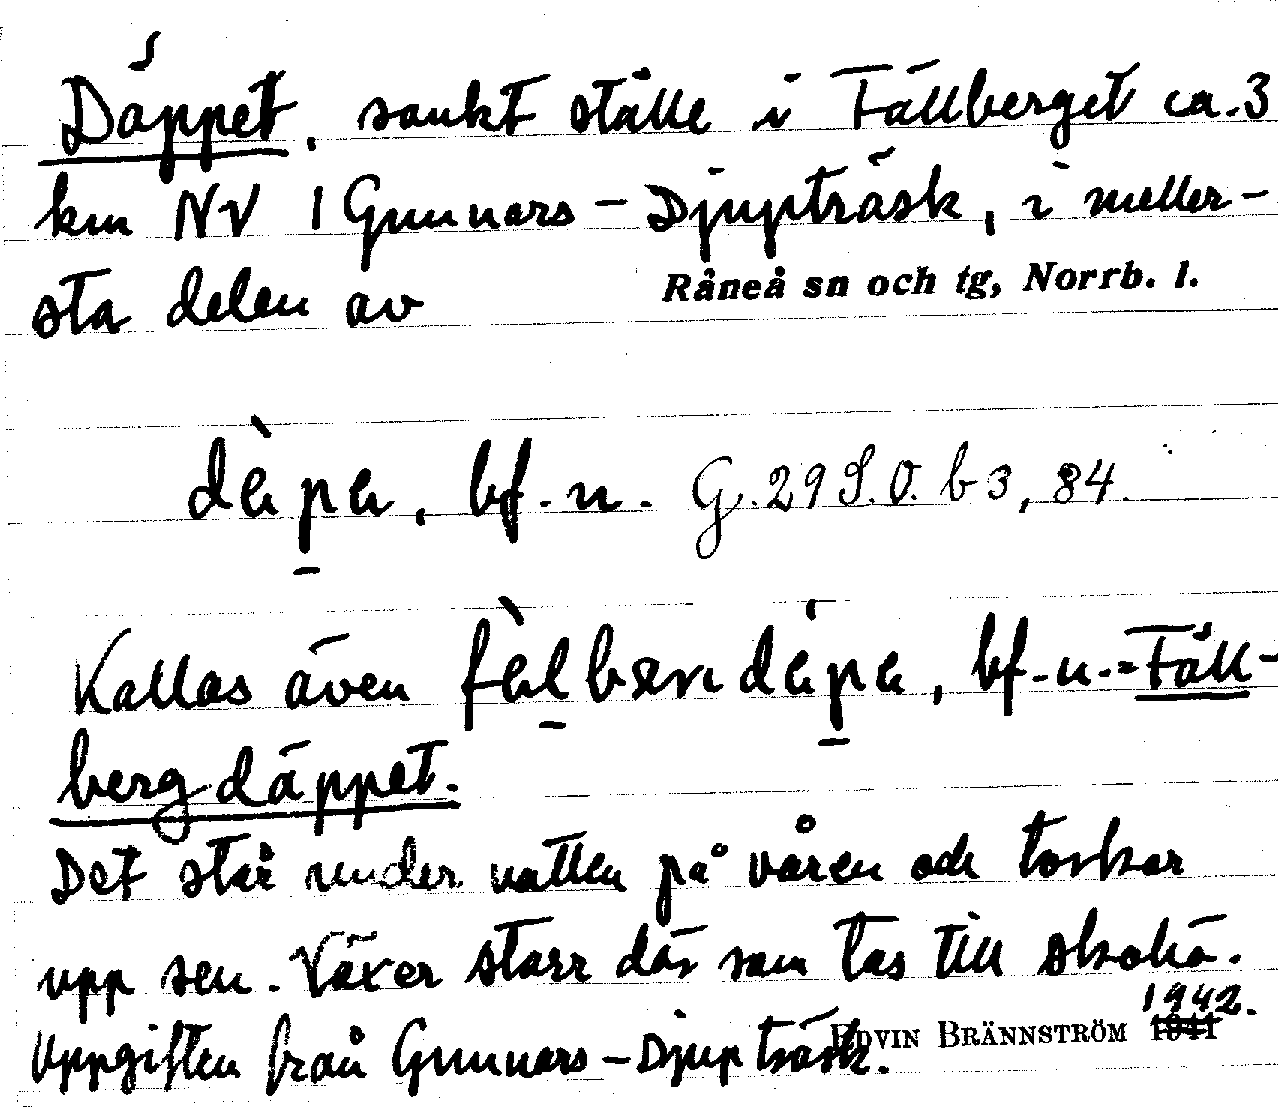 Däppet, sankt ställe i Fällberget ca. 3
km NV l Gunnars-Djupträsk, i meller-
sta delen av Råneå sn och tg, Norrb. l.
dὲpa, bf. n. G. 29 S.O. b 3, 84.
Kallas även bf. n. = Fäll-
bergdäppet.
Det står under vatten på våren och torkar
upp sen. Växer starr där som tas till skohö.
1942.
Uppgiften från Gunnars-Djupträsk. EDVIN BRÄNNSTRÖM 1941